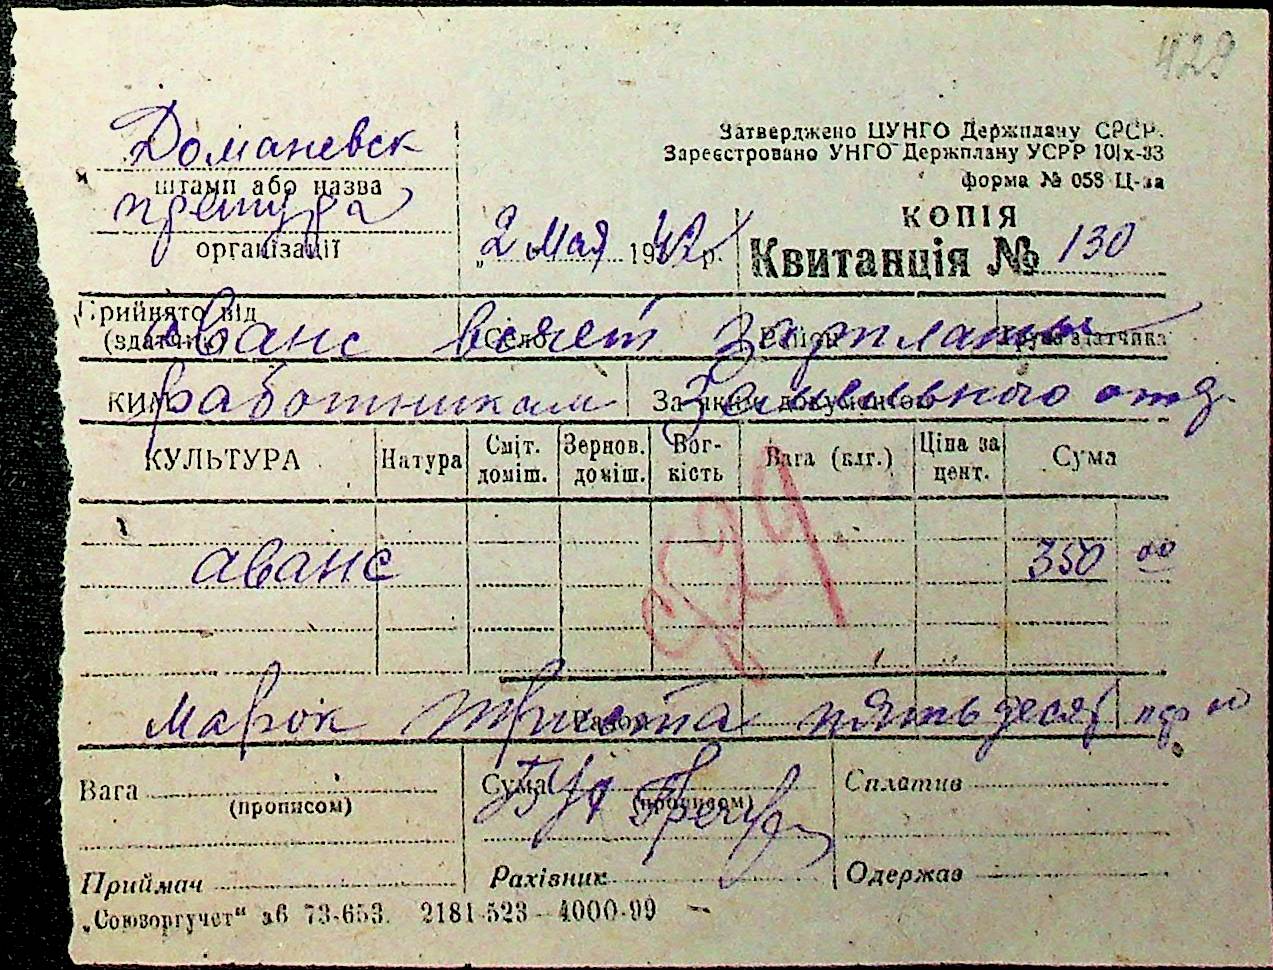 429
Доманевск
штамп або назва
претура
організації
Затверджено ЦУНГО Держплану СРСР.
Зареєстровано УНГО Держплану УСРР 10/х-33
форма № 058 Ц-за
КОПІЯ
„2 мая 1942 р.
Квитанція № 130
Прийнято від
(здатчик)
Село
Район
Група здатчика
аванс в счет зарплаты
КИМ
За яким документом
работникам Земельного отд.
КУЛЬТУРА Натура Сміт. доміш. Зернов. доміш. Вог-кість Вага (клг.) Ціна за цент. Сума
429
аванс 350 00
Разом
Марок триста пятьдесят пф 00
Вага (прописом)
Сума (прописом)
Сплатив
Бух
Приймач
Рахівник
Одержав
„Союзоргучет“ зб 73-653. 2181-523 – 4000-99